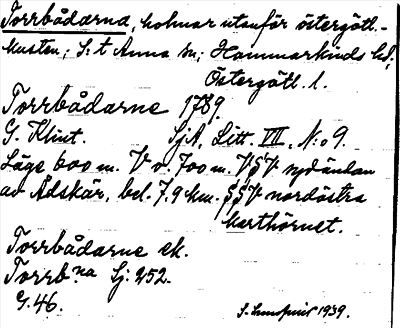 Torrbådarna, holmar utanför östergötl.-
kusten; S:t Anna sn; Hammarkinds hd,
Östergötl. l.
Torrbådarne 1789
G. Klint. SjA, Litt. VII, N:o 9.
Läge 600 m. V o. 700 m. VSV sydändan
av Ådskär, bel. 7.9 km. SSV nordöstra
karthörnet.
Torrbådarne ek.
Torrb:na Sj: 252.
G. 46.
1939.